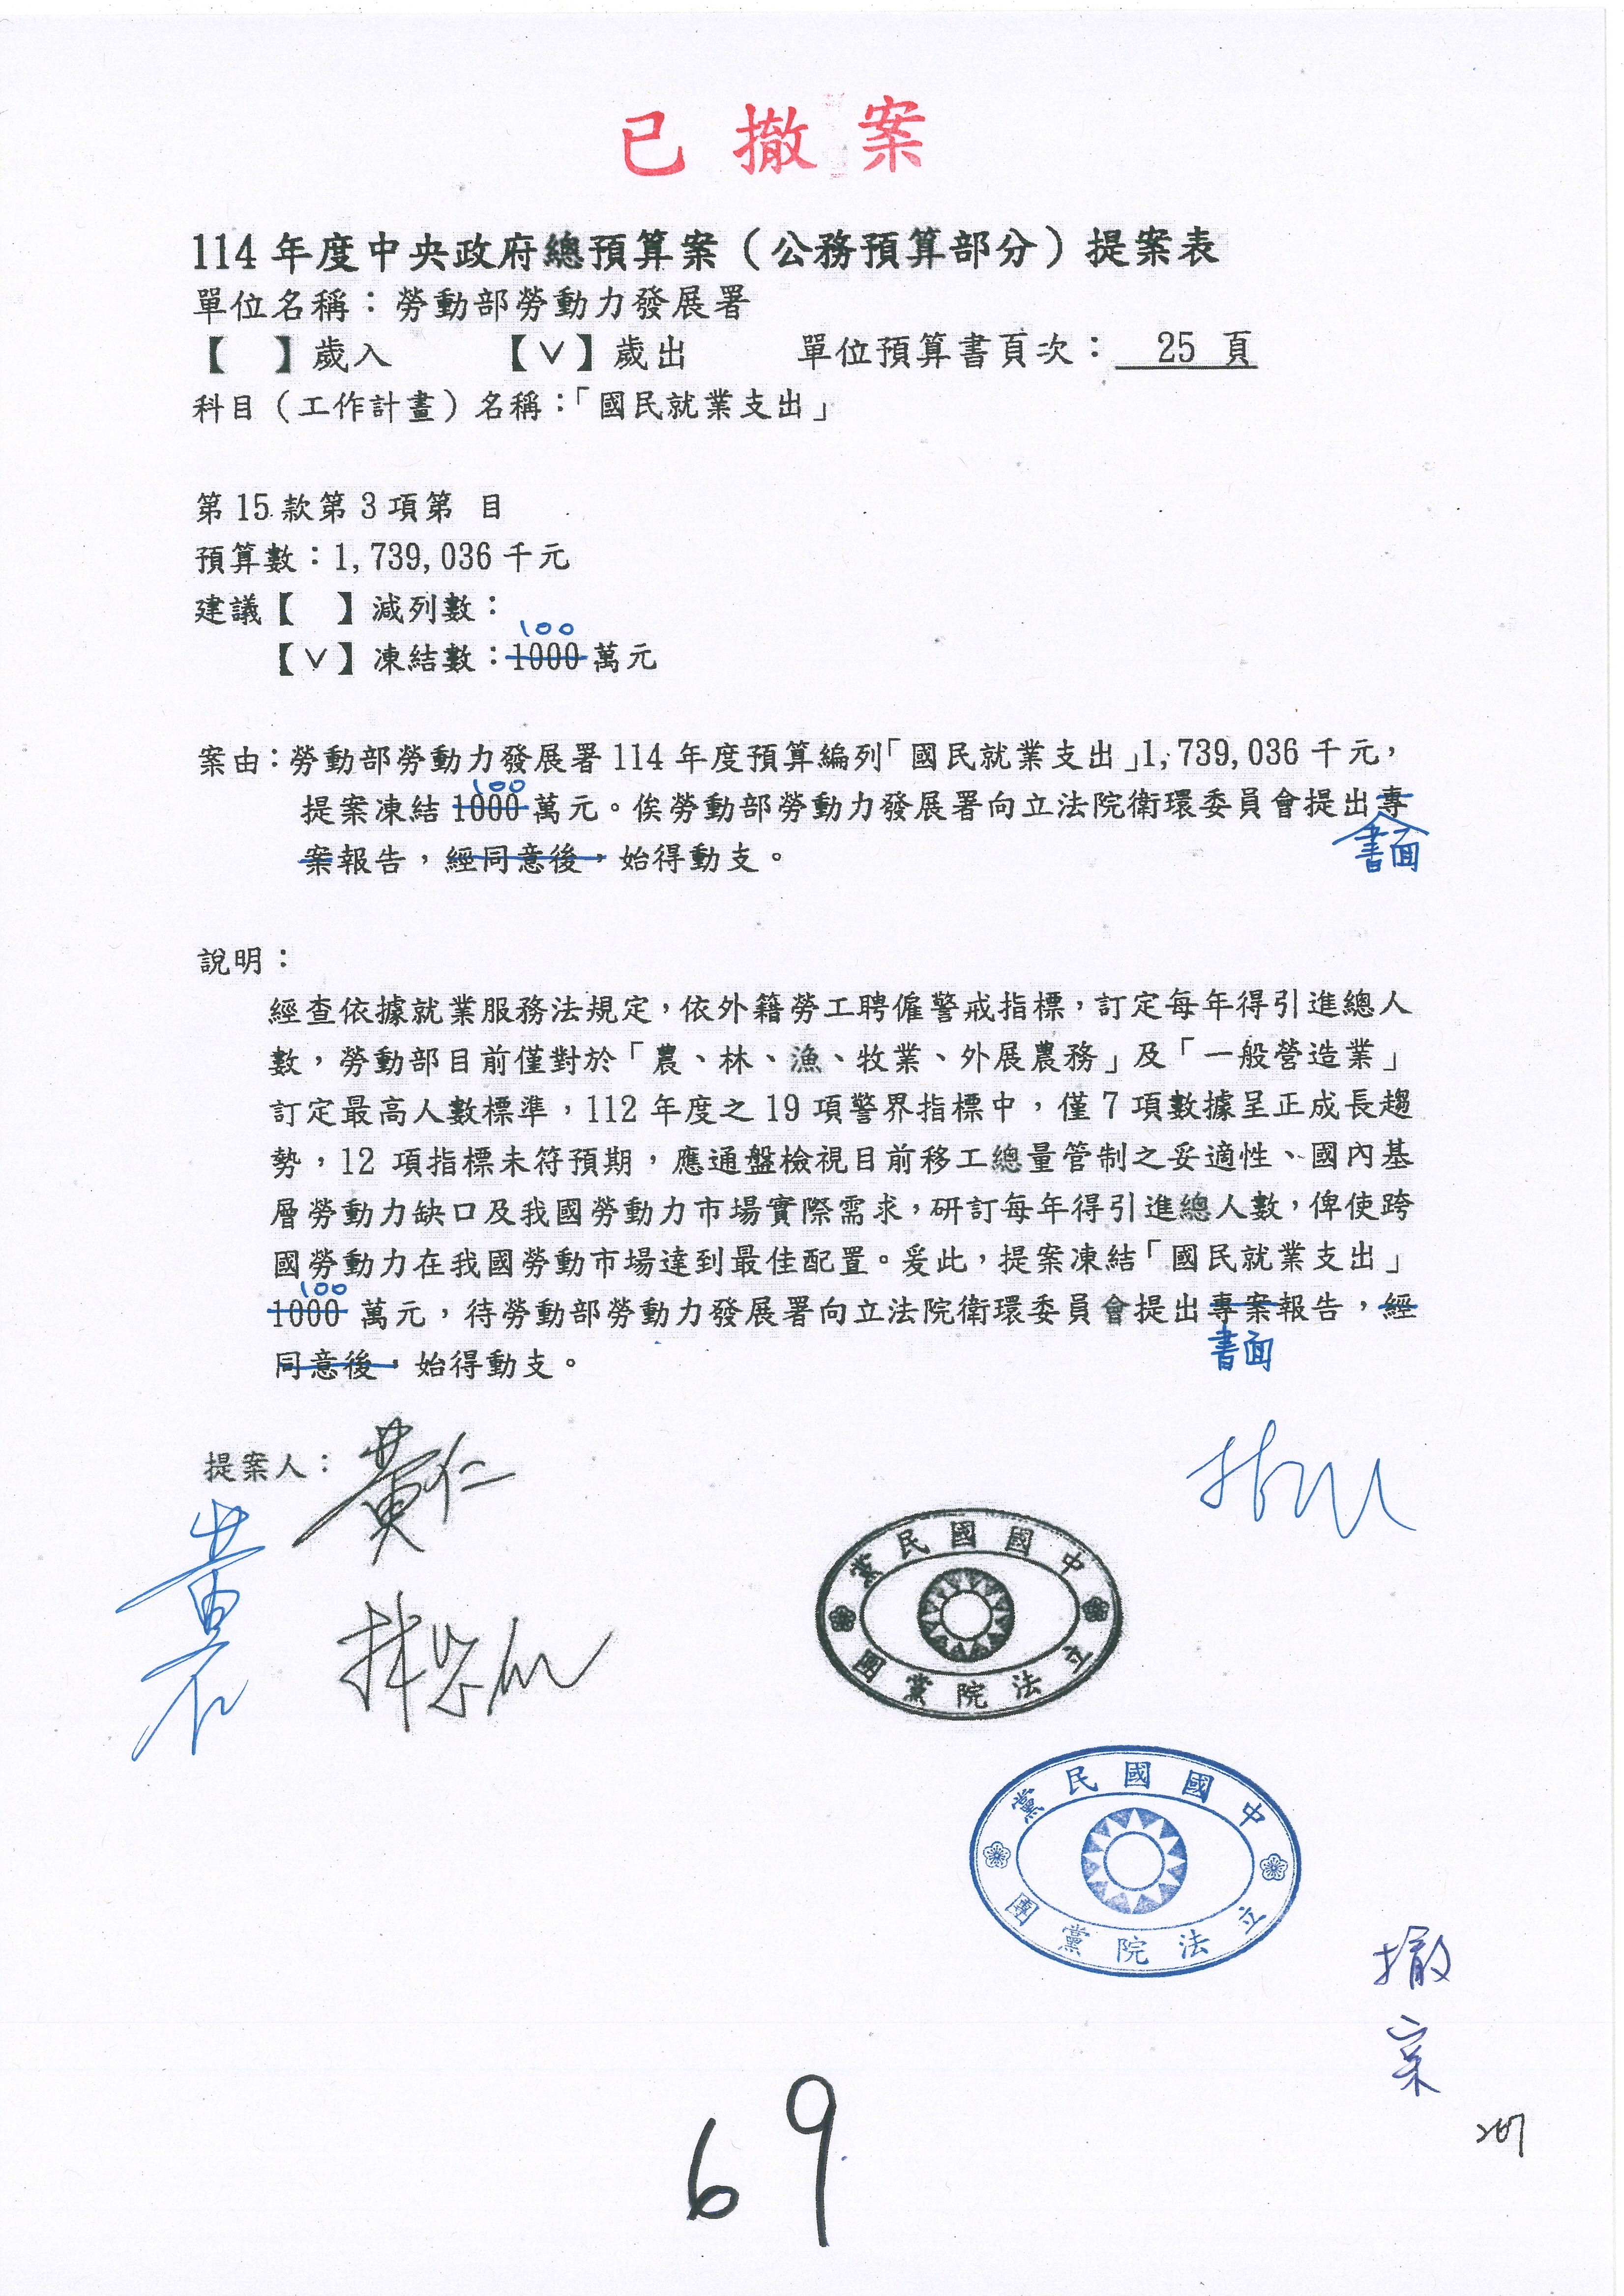 已撤案
114年度中央政府總預算案（公務預算部分）提案表
單位名稱：勞動部勞動力發展署
【　】歲入　【V】歲出　單位預算書頁次：25 頁
科目（工作計畫）名稱：「國民就業支出」
第15款第3項第 目
預算數：1,739,036千元
建議【　】減列數：
100
【V】凍結數：1000萬元
案由：勞動部勞動力發展署114年度預算編列「國民就業支出」1,739,036千元，
100
提案凍結1000萬元。俟勞動部勞動力發展署向立法院衛環委員會提出專
書面
案報告，經同意後，始得動支。
說明：
經查依據就業服務法規定，依外籍勞工聘僱警戒指標，訂定每年得引進總人
數，勞動部目前僅對於「農、林、漁、牧業、外展農務」及「一般營造業」
訂定最高人數標準，112年度之19項警界指標中，僅7項數據呈正成長趨
勢，12項指標未符預期，應通盤檢視目前移工總量管制之妥適性、國內基
層勞動力缺口及我國勞動力市場實際需求，研訂每年得引進總人數，俾使跨
國勞動力在我國勞動市場達到最佳配置。爰此，提案凍結「國民就業支出」
100
1000萬元，待勞動部勞動力發展署向立法院衛環委員會提出專案報告，經
書面
同意後，始得動支。
提案人：黃仁
黃仁
中國國民黨
立法院黨團
中國國民黨
立法院黨團
撤案
69
207